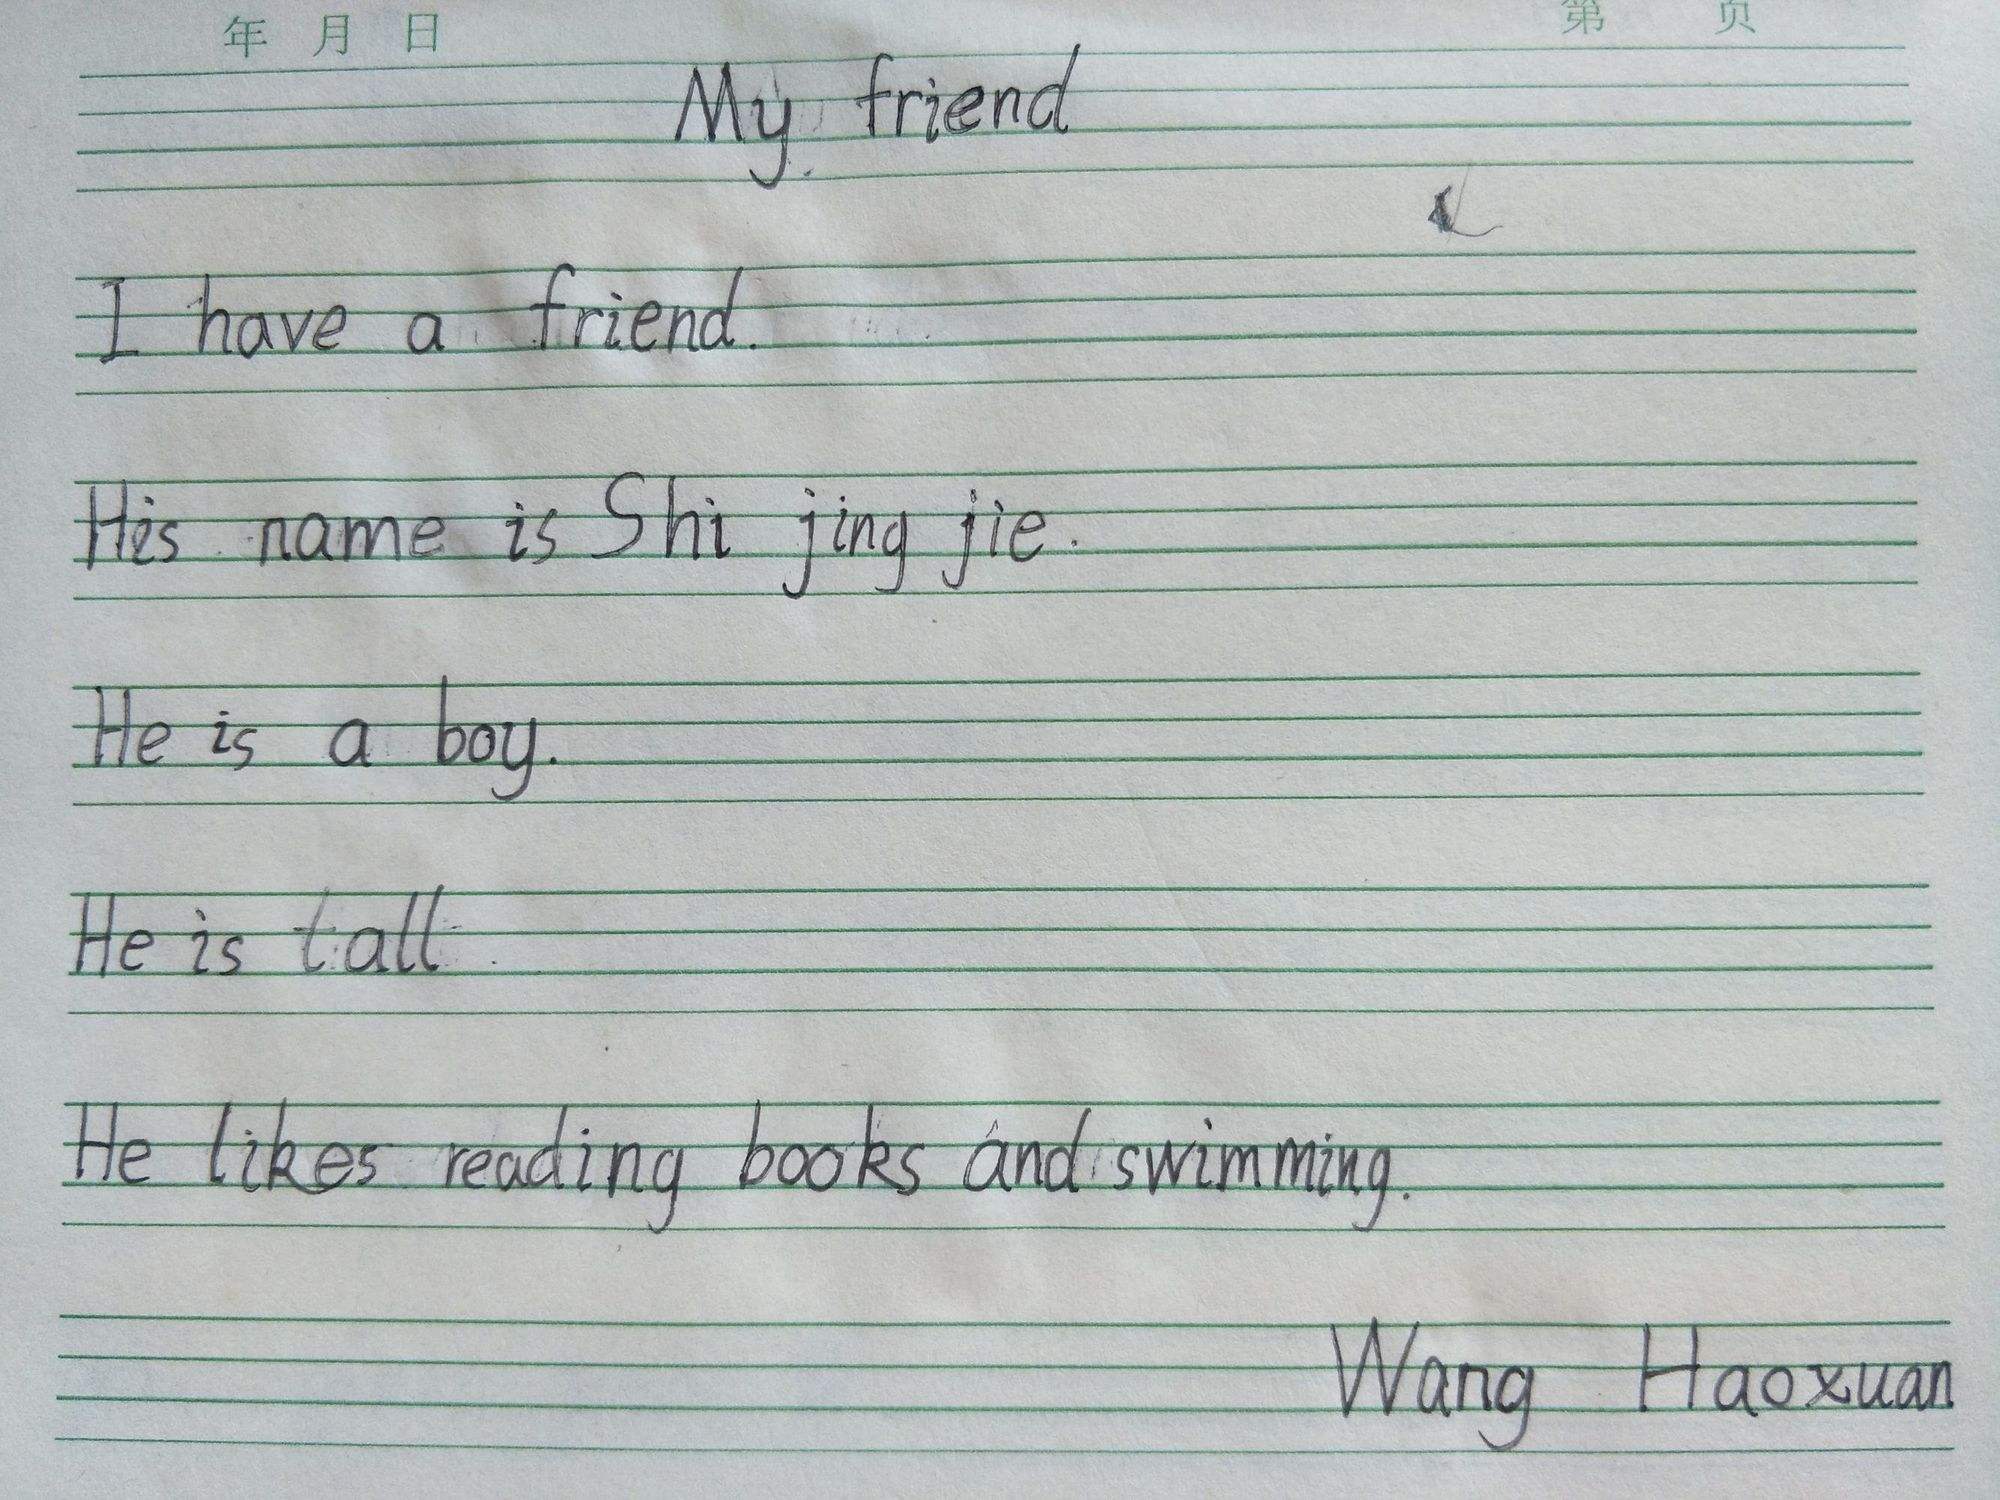 年 月 日 第 页
My friend
I have a friend.
His name is Shi jing jie.
He is a boy.
He is tall.
He likes reading books and swimming.
Wang Haoxuan